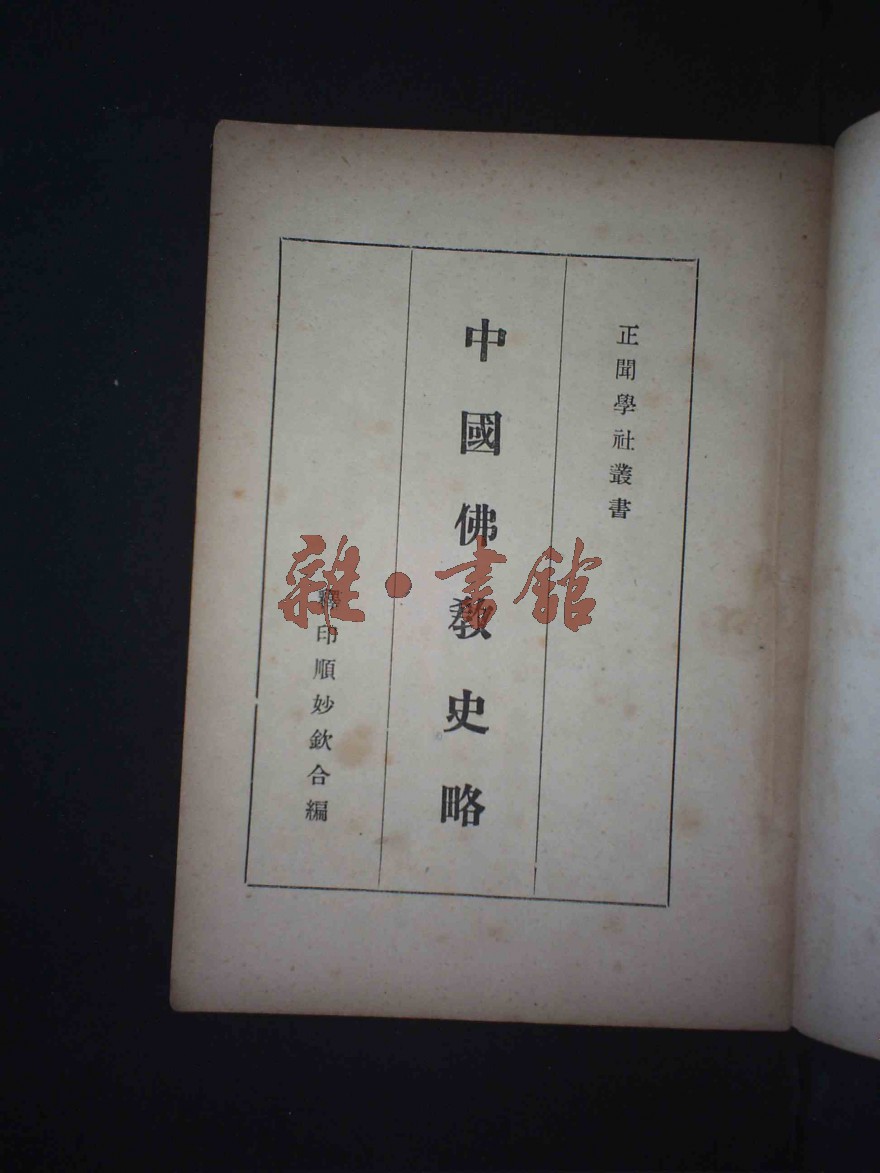 正聞學社叢書
中國佛教史略
釋印順妙欽合編
雜·書館